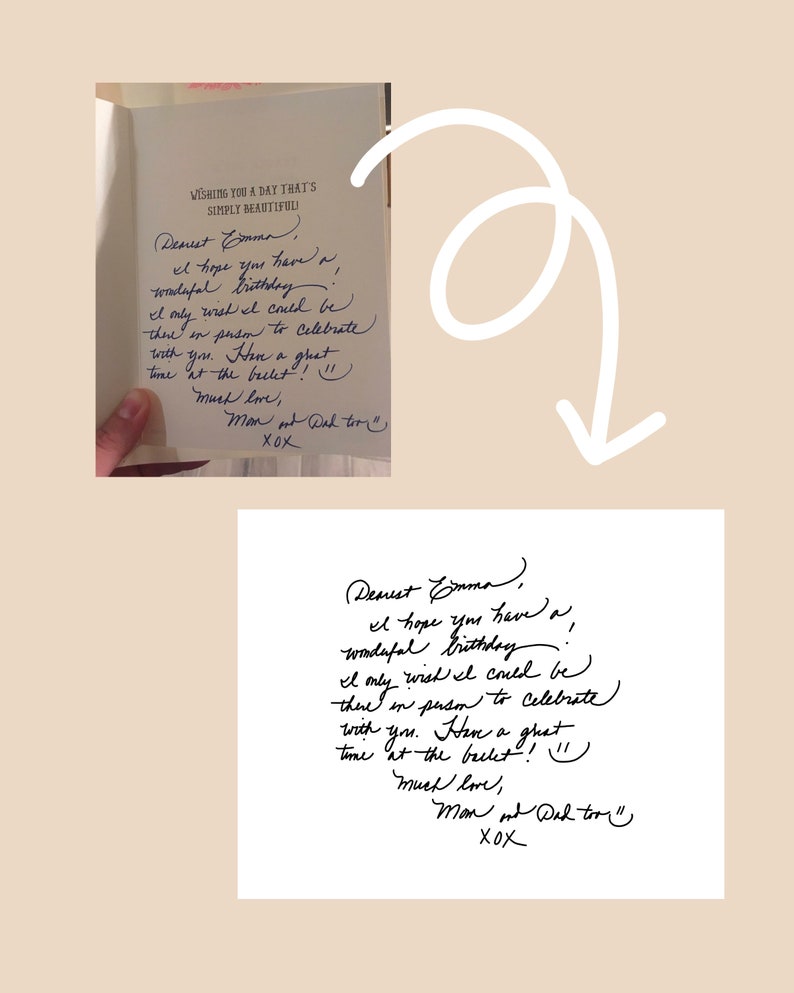 WISHING YOU A DAY THAT'S
SIMPLY BEAUTIFUL!
Dearest Emma,
I hope you have a
wonderful birthday!
I only wish I could be
there in person to celebrate
with you. Have a great
time at the ballet!
Much love,
Mom and Dad too
XOX
Dearest Emma,
I hope you have a
wonderful birthday!
I only wish I could be
there in person to celebrate
with you. Have a great
time at the ballet!
Much love,
Mom and Dad too
XOX